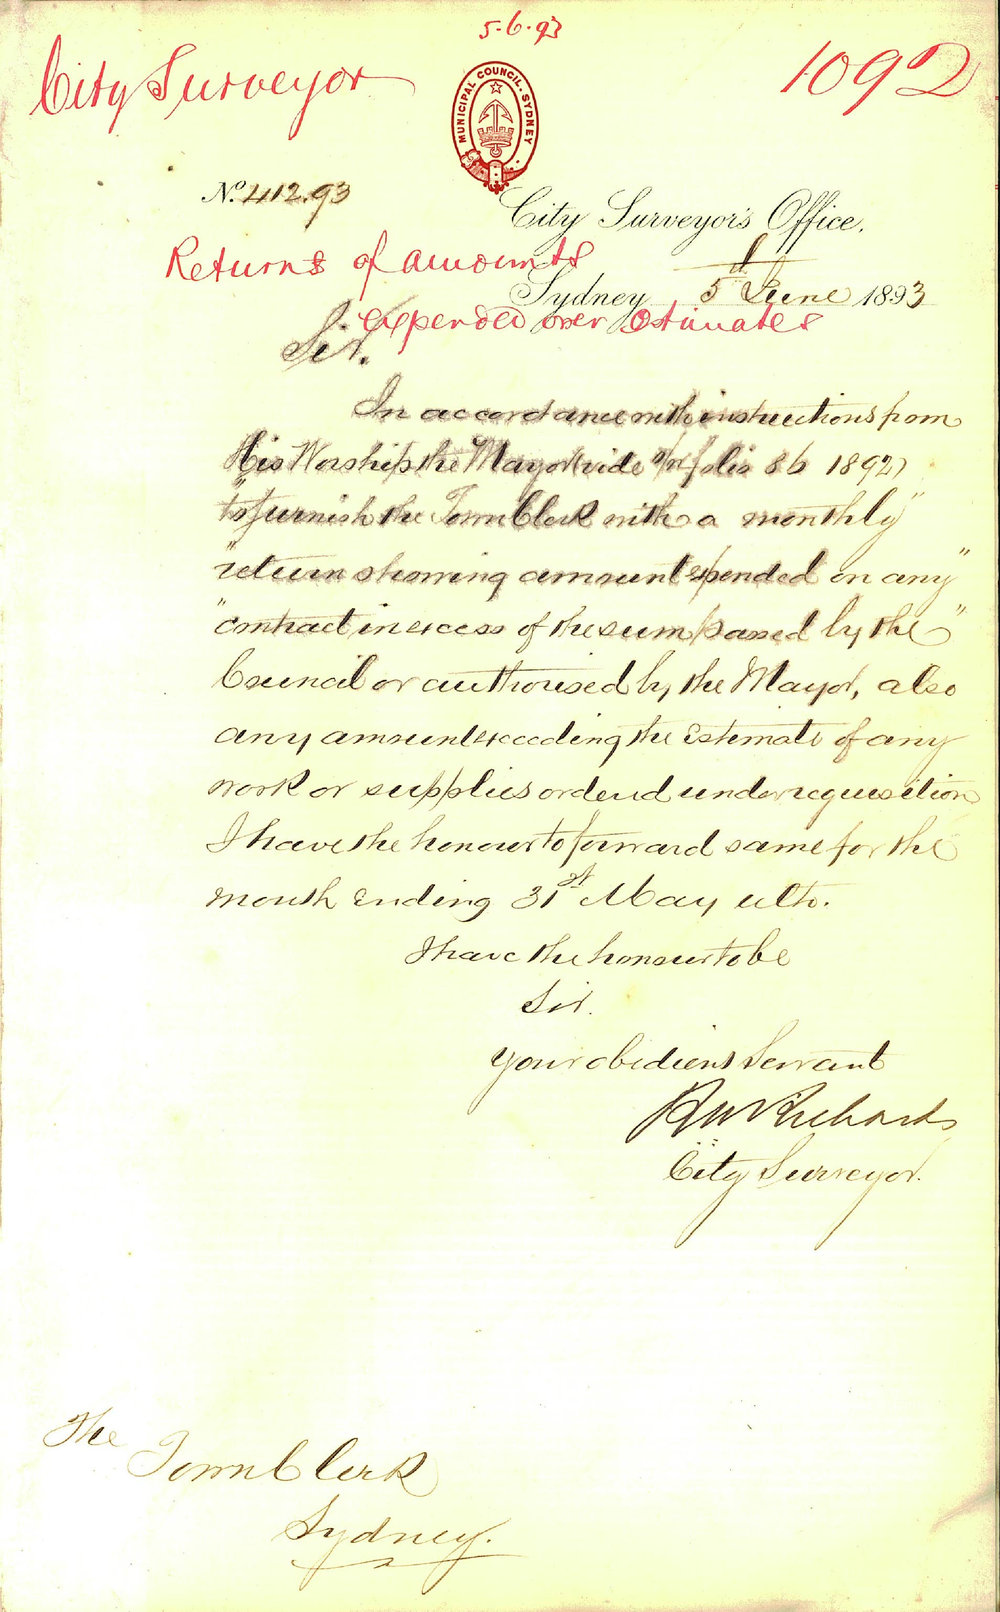 5.6.93
City Surveyor
1092
MUNICIPAL COUNCIL. SYDNEY
No. 412.93
City Surveyor's Office.
Returns of amounts
Sydney 5th June 1893
expended over Estimates
Sir.
In accordance with instructions from
His Worship the Mayor (vide folio 86 1892)
"to furnish the Town Clerk with a monthly"
"return showing amount expended on any"
"contract in excess of the sum passed by the"
Council or authorised by the Mayor, also
any amount exceeding the Estimate of any
work or supplies ordered under requisition
I have the honour to forward same for the
month ending 31st May ulto.
I have the honour to be
Sir.
Your obedient Servant
RWRichards
City Surveyor.
The
Town Clerk
Sydney.